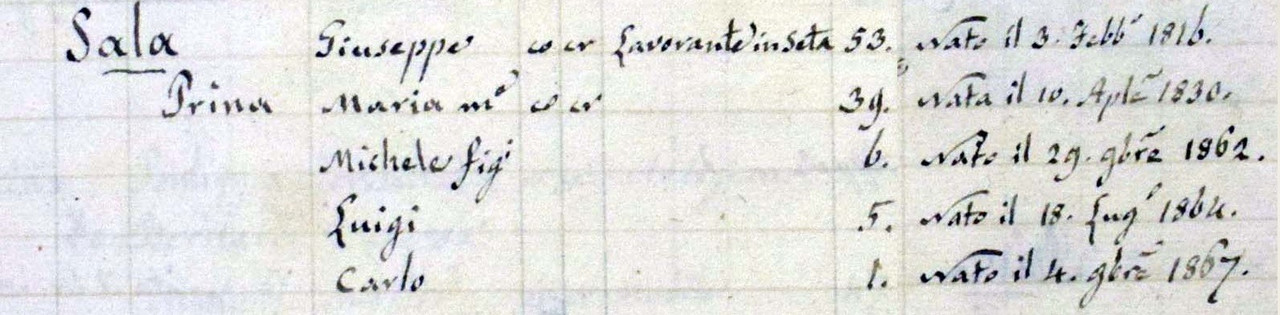 Sala Giuseppe co cr Lavorante in Seta 53. Nato il 3. Febb° 1816.
Prina Maria me co cr 39. Nata il 10. Aple 1830.
Michele figi 6. Nato il 29. 9bre 1862.
Luigi 5. Nato il 18. Lugo 1864.
Carlo 1. Nato il 4. 9bre 1867.